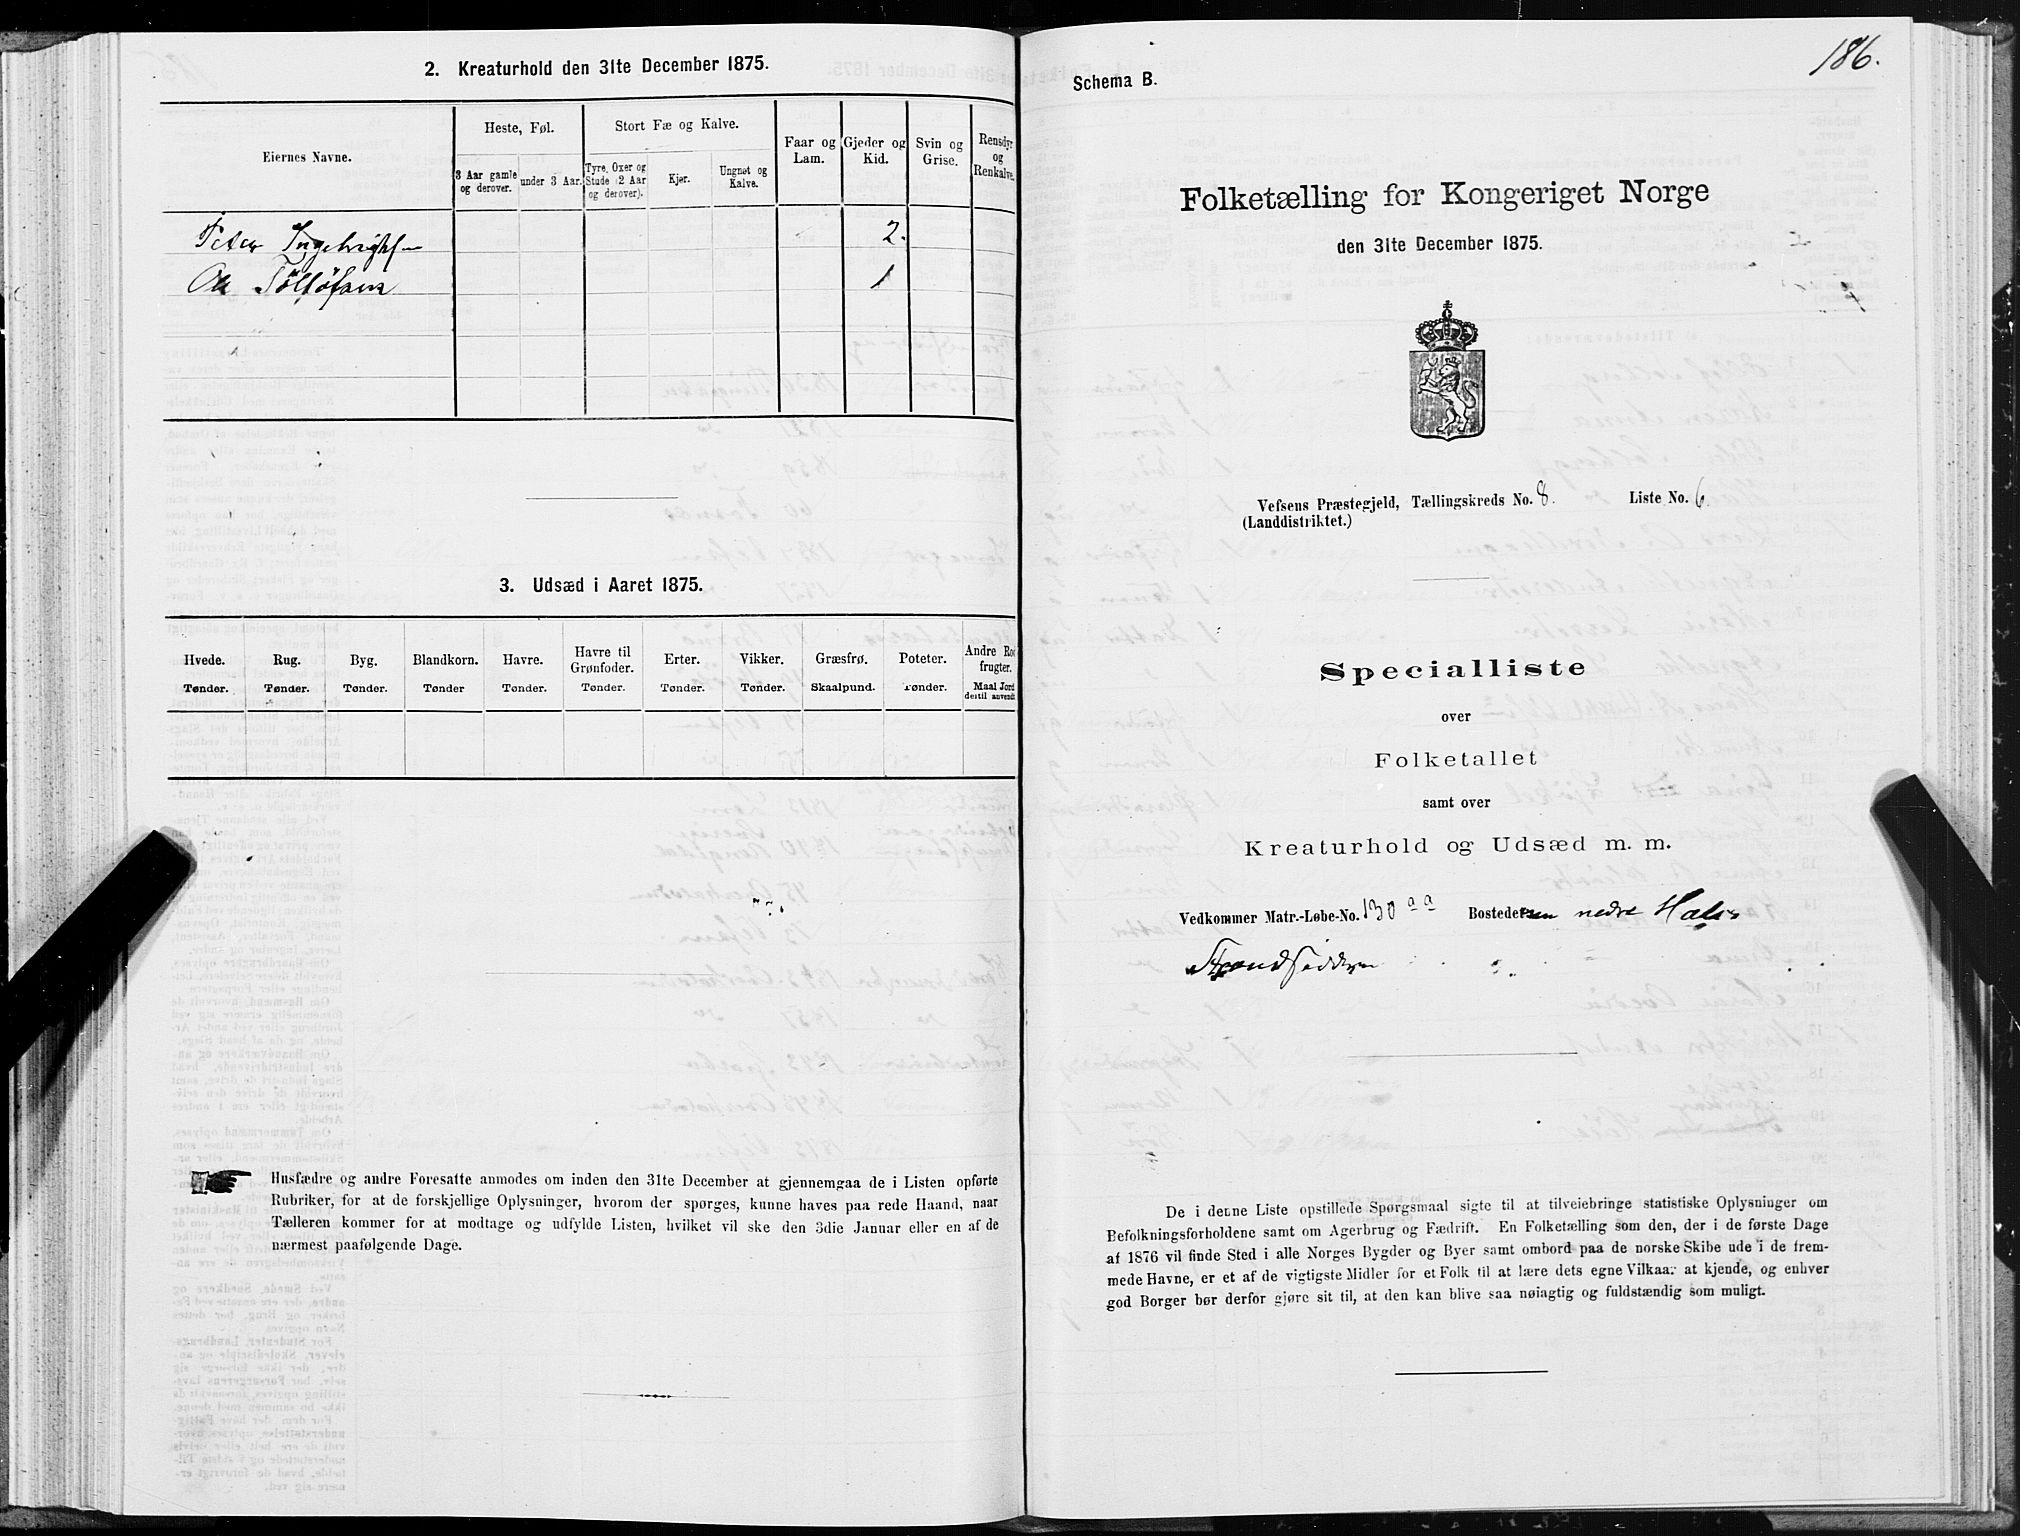 2. Kreaturhold den 31te December 1875.
Eiernes Navne.
Heste, Føl.
Stort Fæ og Kalve.
Faar og Lam.
Gjeder og Kid.
Svin og Grise.
Rensdyr og Renkalve.
3 Aar gamle og derover.
under 3 Aar.
Tyre, Oxer og Stude (2 Aar og derover).
Kjør.
Ungnøt og Kalve.
Peter Ingebrigtsen 2.
Ole Tollöfsen 1
3. Udsæd i Aaret 1875.
Hvede. Rug. Byg. Blandkorn. Havre. Havre til Grønfoder. Erter. Vikker. Græsfrø. Poteter. Andre Rodfrugter.
Tønder. Tønder. Tønder. Tønder Tønder. Tønder. Tønder. Tønder. Skaalpund. Tønder. Maal Jord dertil anvendt
Husfædre og andre Foresatte anmodes om inden den 31te December at gjennemgaa de i Listen opførte
Rubriker, for at de forskjellige Oplysninger, hvorom der spørges, kunne haves paa rede Haand, naar
Tælleren kommer for at modtage og udfylde Listen, hvilket vil ske den 3die Januar eller en af de
nærmest paafølgende Dage.
186.
Schema B.
Folketælling for Kongeriget Norge
den 31te December 1875.
Vefsens Præstegjeld, Tællingskreds No. 8. Liste No. 6
(Landdistriktet.)
Specialliste
over
Folketallet
samt over
Kreaturhold og Udsæd m. m.
Vedkommer Matr.-Løbe-No. 130 a a Bostedet nedre Hals
Strandsidder
De i denne Liste opstillede Spørgsmaal sigte til at tilveiebringe statistiske Oplysninger om
Befolkningsforholdene samt om Agerbrug og Fædrift. En Folketælling som den, der i de første Dage
af 1876 vil finde Sted i alle Norges Bygder og Byer samt ombord paa de norske Skibe ude i de frem-
mede Havne, er et af de vigtigste Midler for et Folk til at lære dets egne Vilkaar at kjende, og enhver
god Borger bør derfor gjøre sit til, at den kan blive saa nøiagtig og fuldstændig som muligt.